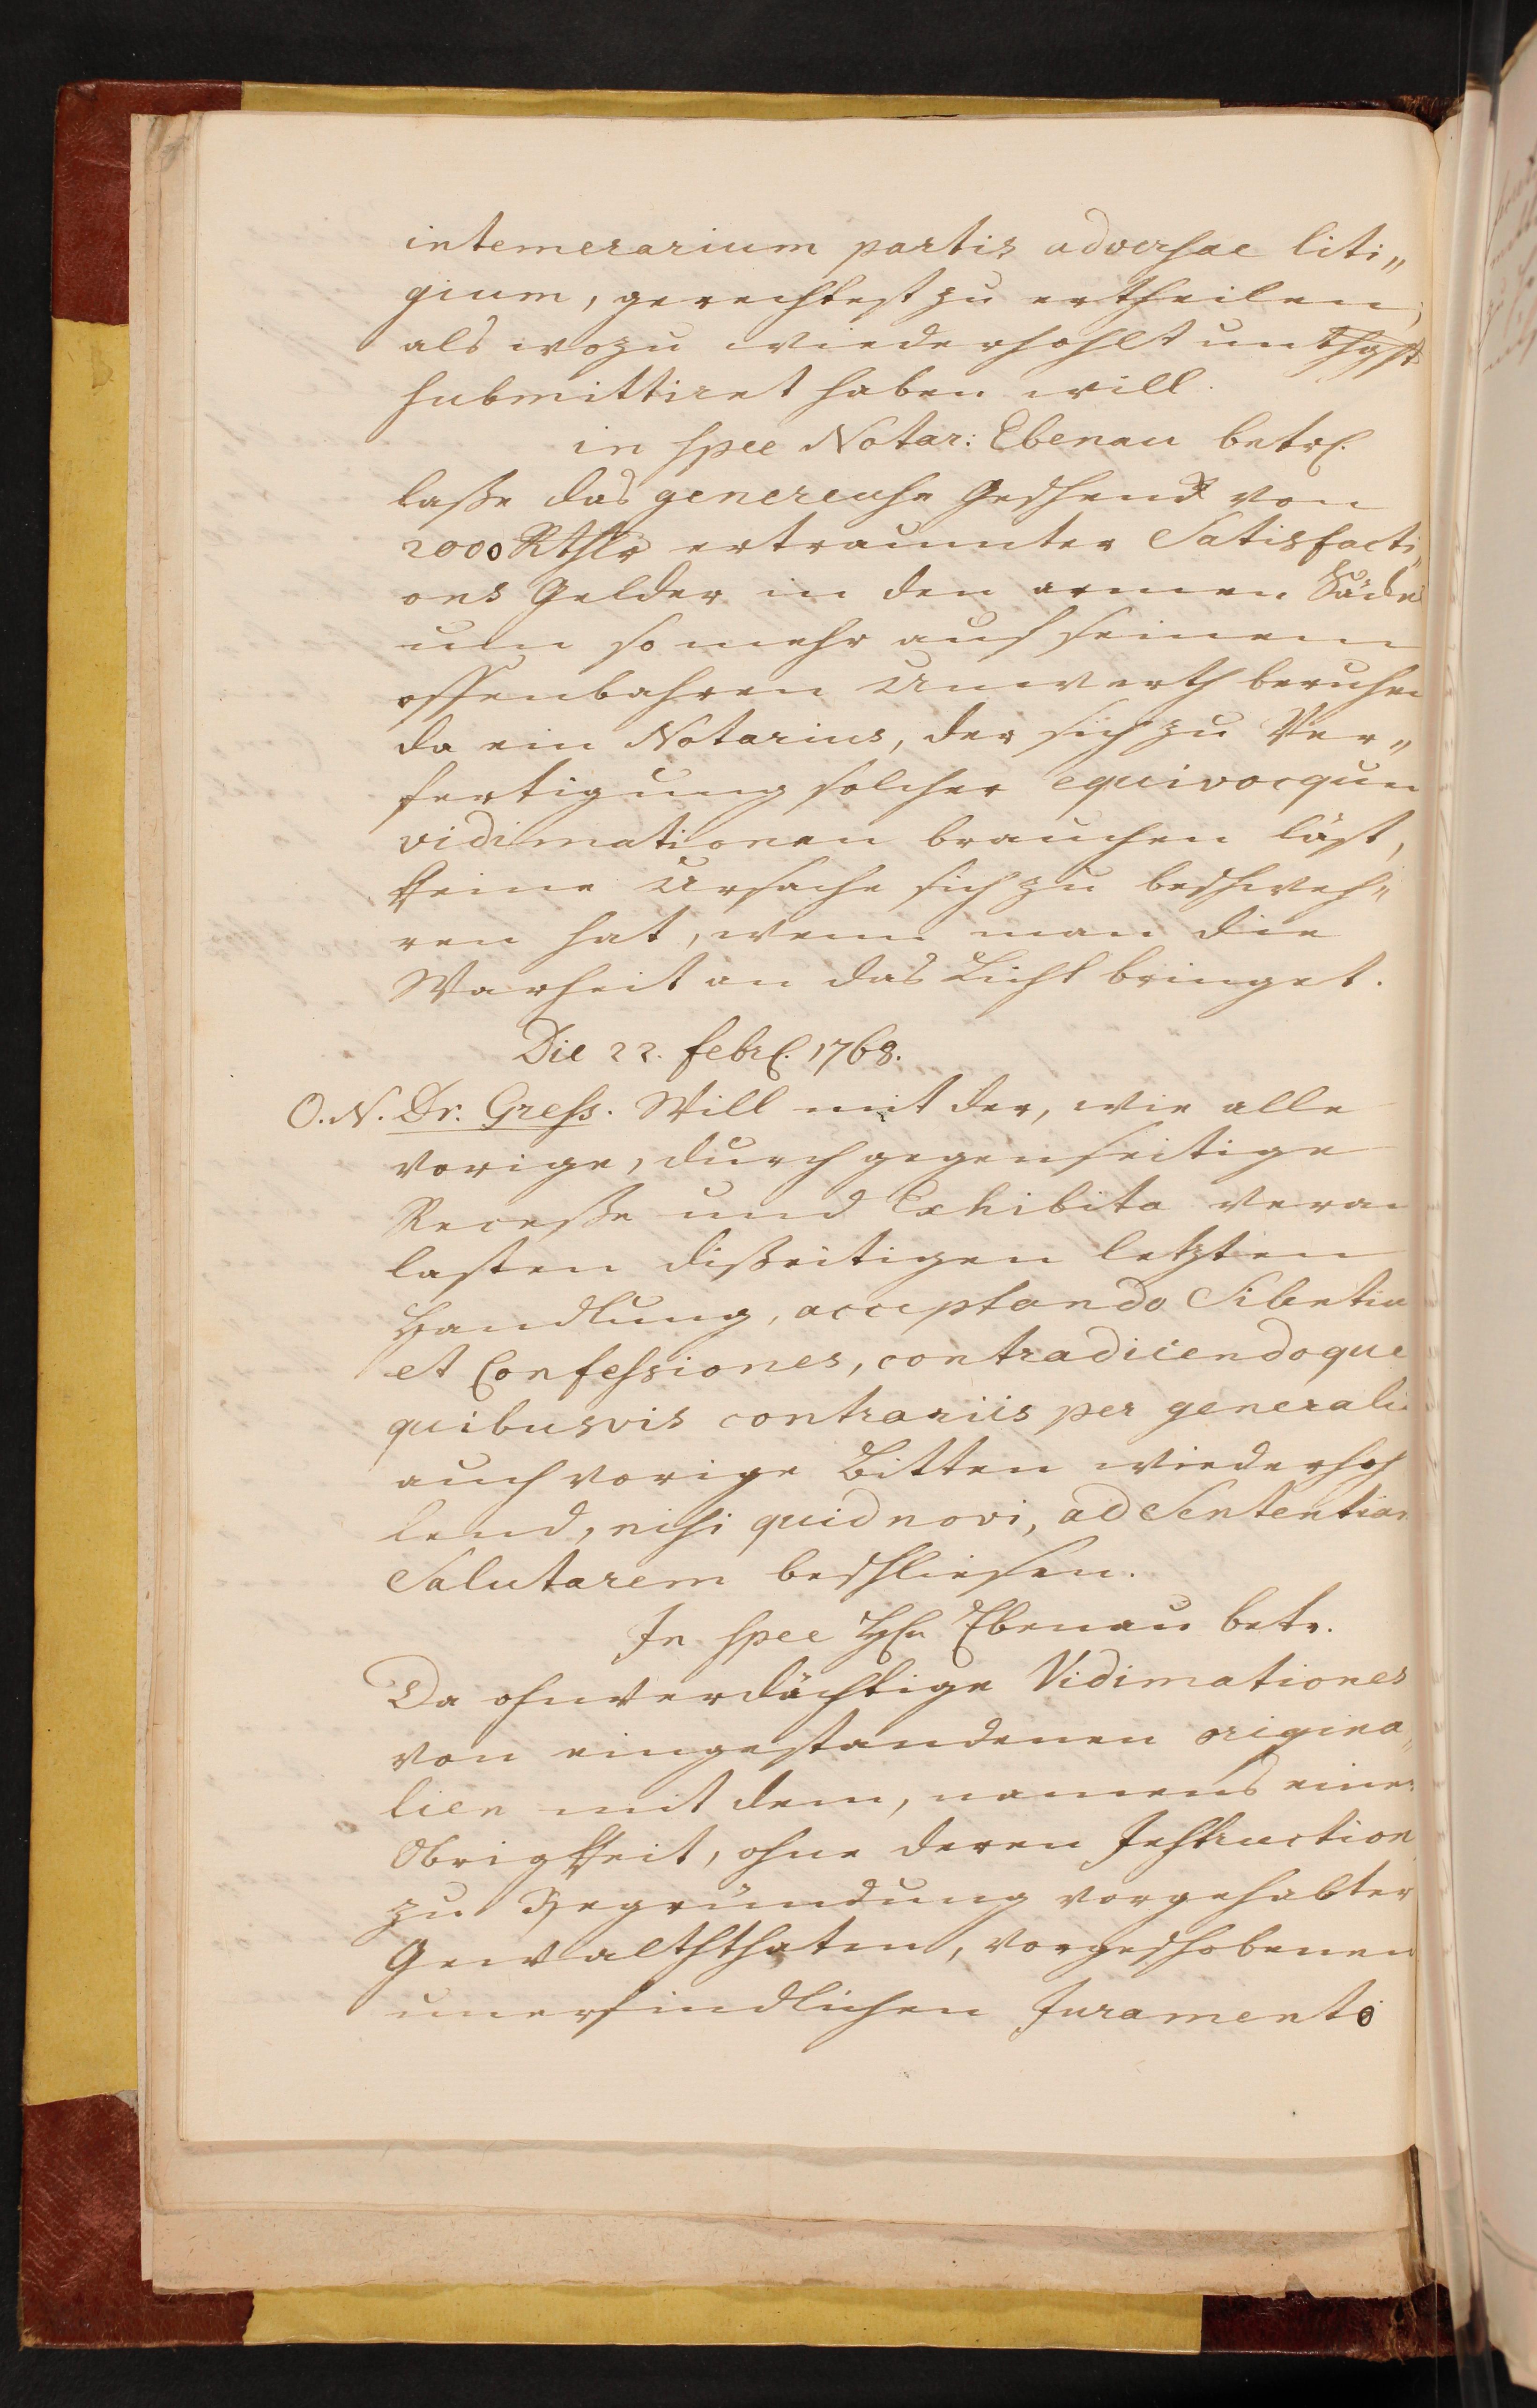 intemerarium partis adversae liti„
gium, gerechtest zu ertheilen,
als wozu wiederhohlt unthgst
submittiret haben will.
in spee Notar: Ebenau betr.
laße das genereuse Geschenck von
2000 Rthlr ertraumter Satisfacti„
ons Gelder in den armen Säckel
um so mehr auf seinem
offenbahren Unwerth beruhen
da ein Notarius, der sich zu Ver„
fertigung solcher equivocquen
vidimationen brauchen läst,
keine Ursache sich zu beschweh„
ren hat, wenn man die
Warheit an das Licht bringet.
Die 22. febr. 1768.
O. N. Dr. Gress. Will mit der, wie alle
vorige, durch gegenseitige
Recesse und Exhibita veran
lasten dißeitigen letzten
Handlung, acceptando Silentia
et Confessiones, contradicendoque
quibusvis contrariis per generalia
auch vorige Bitten wiederhoh
lend, nisi quid novi, ad Sententiam
Salutarem beschliesen.
In spee Hrn Ebenau betr.
Da ohnverdächtige Vidimationes
von eingestandenen origina„
lien mit dem, namens einer
Obrigkeit, ohne deren Instruction
zu Begründung vorgehabter
Gewaltthaten, vorgeschobenen
unerfindlichen Juramento